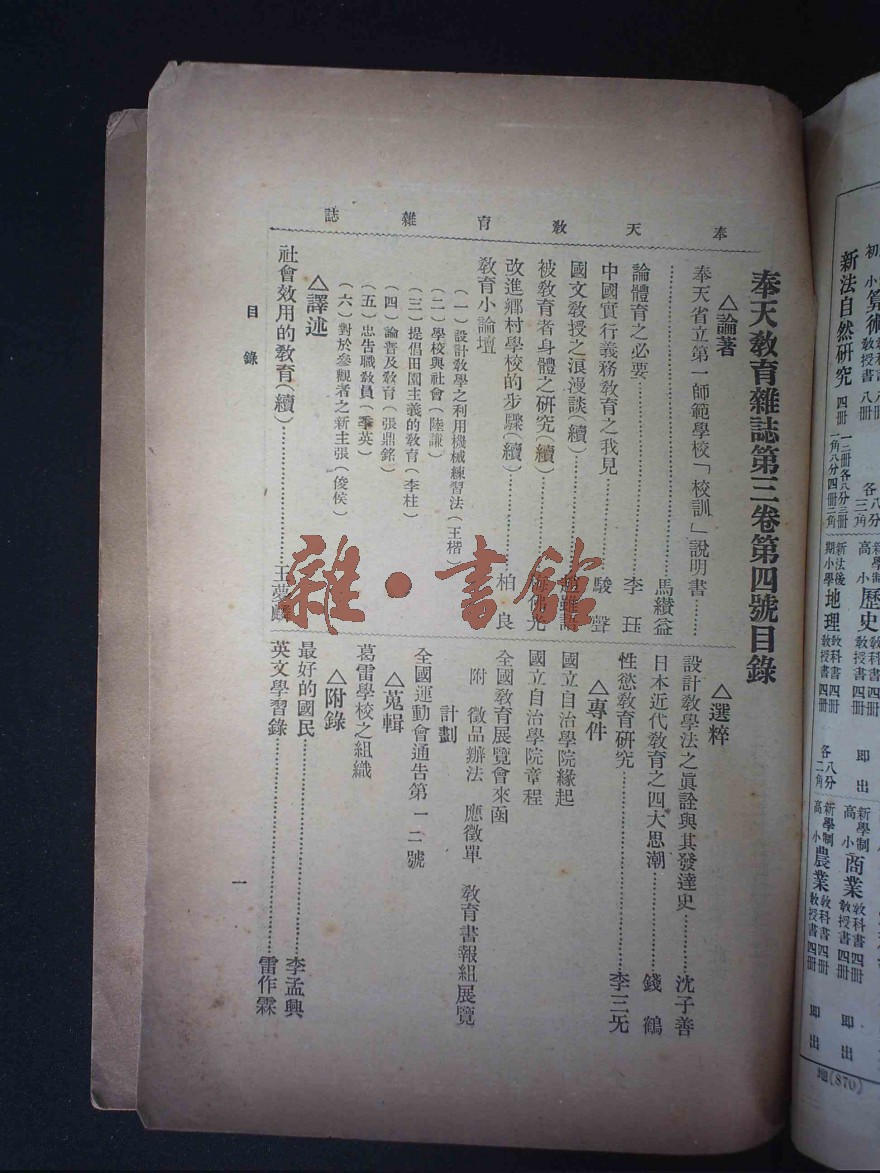 奉天教育雜誌
奉天教育雜誌第三卷第四號目錄
△論著
奉天省立第一師範學校「校訓」說明書……
……馬纘益
論體育之必要……李珏
中國實行義務教育之我見……駿聲
國文教授之浪漫談（續）……趙雖語
被教育者身體之研究（續）……佛光
改進鄉村學校的步驟（續）……柏良
教育小論壇
（一）設計教學之利用機械練習法（王楷）
（二）學校與社會（陸謙）
（三）提倡田園主義的教育（李柱）
（四）論普及教育（張鼎銘）
（五）忠告職教員（季英）
（六）對於參觀者之新主張（俊侯）
△譯述
社會效用的教育（續）……王夢麟
△選粹
設計教學法之眞詮與其發達史……沈子善
日本近代教育之四大思潮……錢鶴
性慾教育研究……李三无
△專件
國立自治學院緣起
國立自治學院章程
全國教育展覽會來函
附 徵品辦法 應徵單 教育書報組展覽
計劃
全國運動會通告第一二號
△蒐輯
葛雷學校之組織
△附錄
最好的國民……李孟興
英文學習錄……雷作霖
目錄
一
雜·書館
新法自然研究 四冊
歷史
期小學 地理 教科書四冊 教授書四冊
新學制 高小 商業 教科書四冊 教授書四冊 即出
新學制 高小 農業 教科書四冊 教授書四冊 即出
(870)